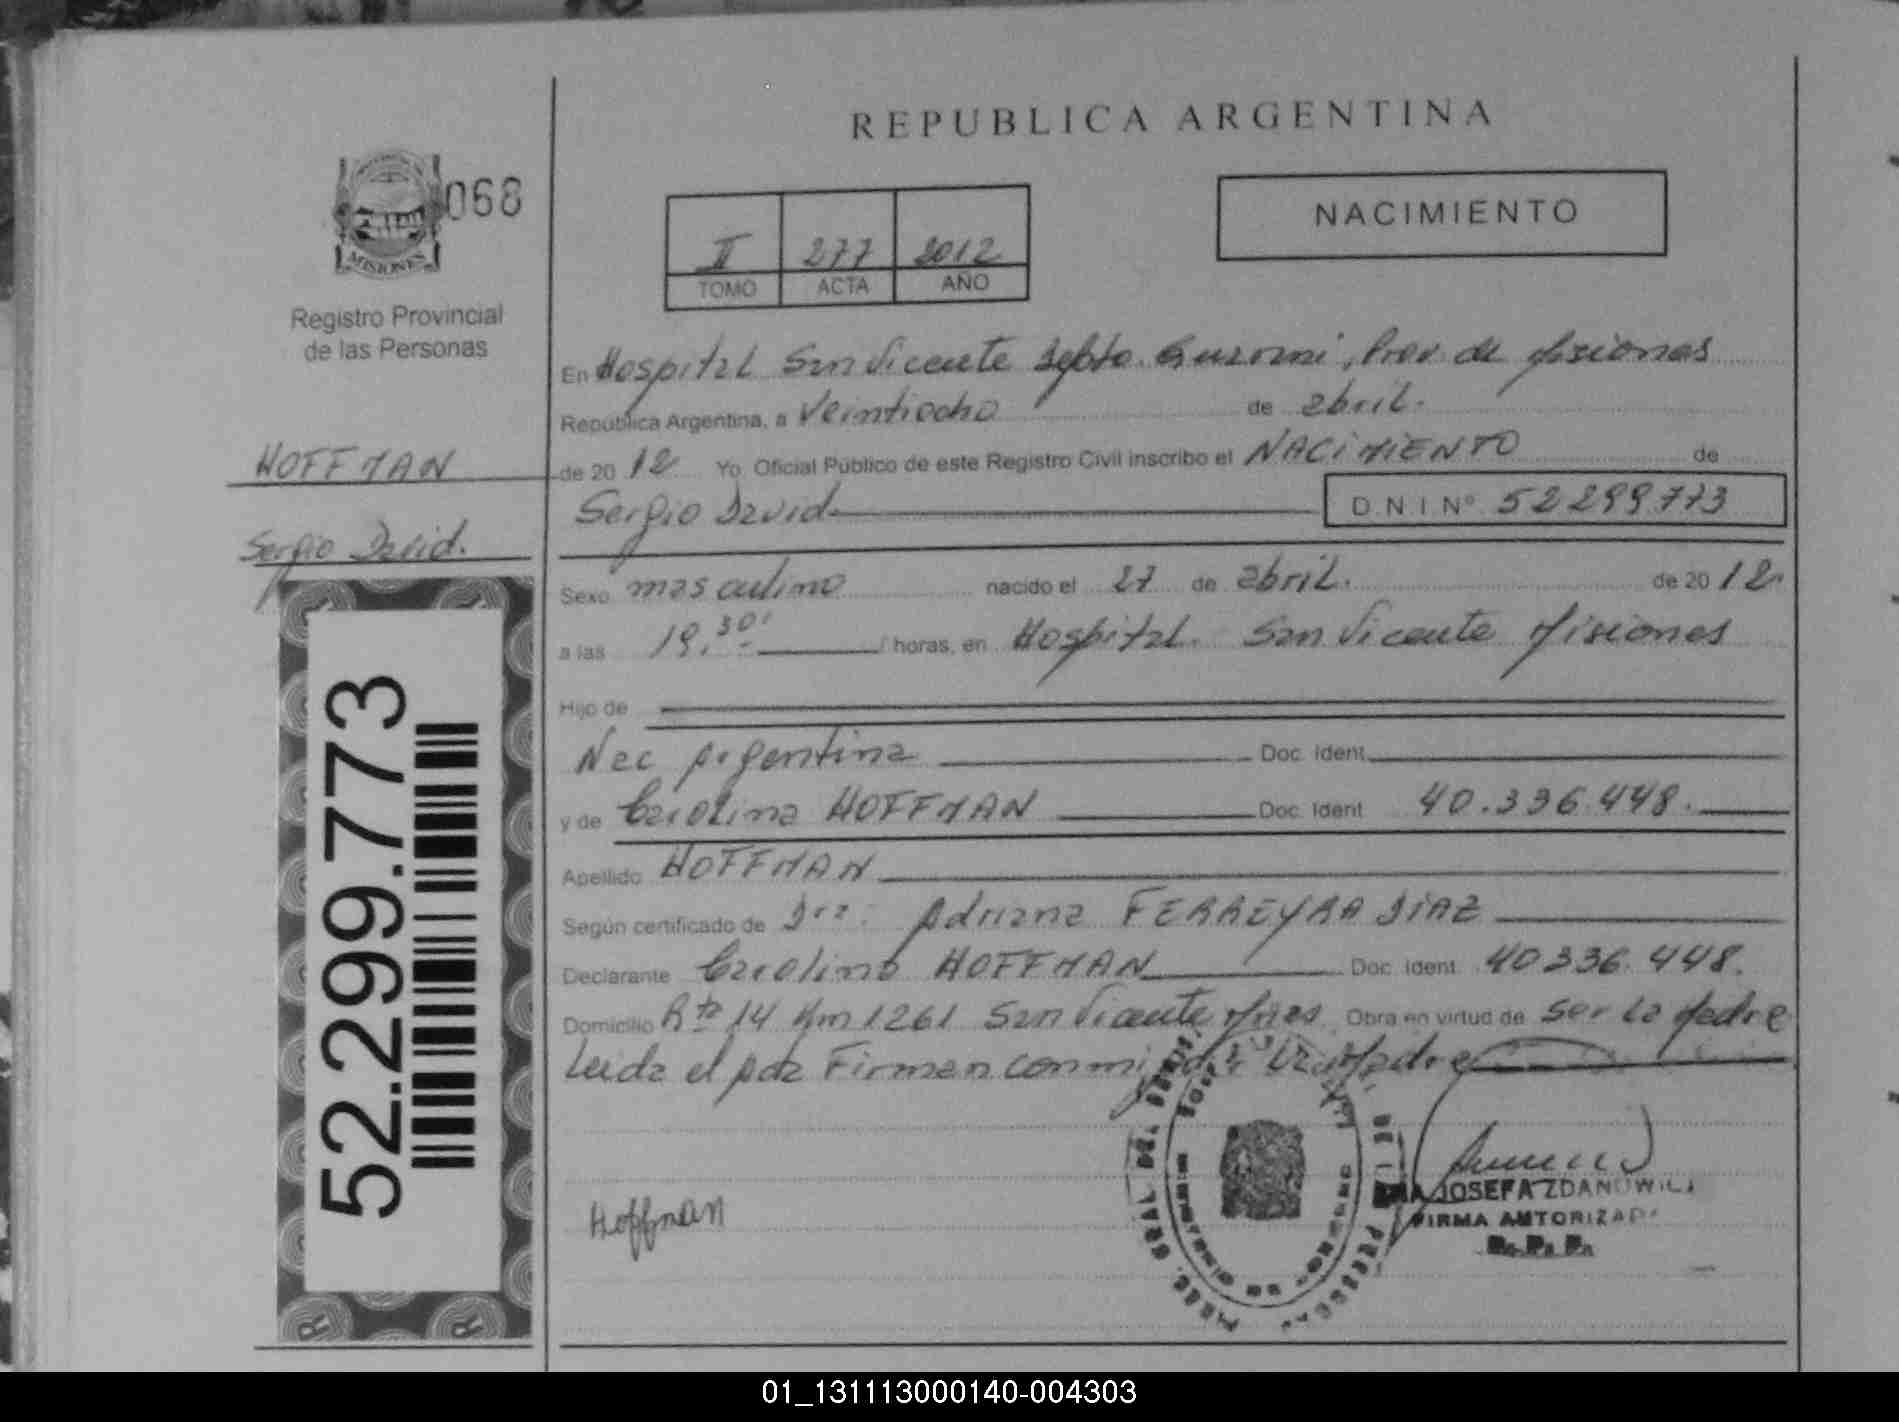 REPUBLICA ARGENTINA
068
MISIONES
Registro Provincial
de las Personas
II 277 2012
TOMO ACTA AÑO
NACIMIENTO
HOFFMAN
Sergio David.
52.299.773
En Hospital San Vicente Depto. Guarani, Prov. de Misiones
República Argentina, a Veintiocho de abril.
de 20 12 Yo Oficial Público de este Registro Civil inscribo el NACIMIENTO de
Sergio David D N I Nº 52299773
Sexo masculino nacido el 27 de abril. de 20 12
a las 19.30' horas, en Hospital San Vicente Misiones
Hijo de
Nac Argentina Doc. Ident.
y de Carolina HOFFMAN Doc. Ident 40.336.448.
Apellido HOFFMAN
Según certificado de Dra: Adriana FERREYRA DIAZ
Declarante Carolina HOFFMAN Doc. Ident. 40336.448.
Domicilio Rta 14 Km 1261 San Vicente Mnes Obra en virtud de ser la Madre
Leida el acta Firman conmigo la Madre
Hoffman
JOSEFA ZDANOWI
FIRMA AUTORIZADA
R. P. P.
01_131113000140-004303